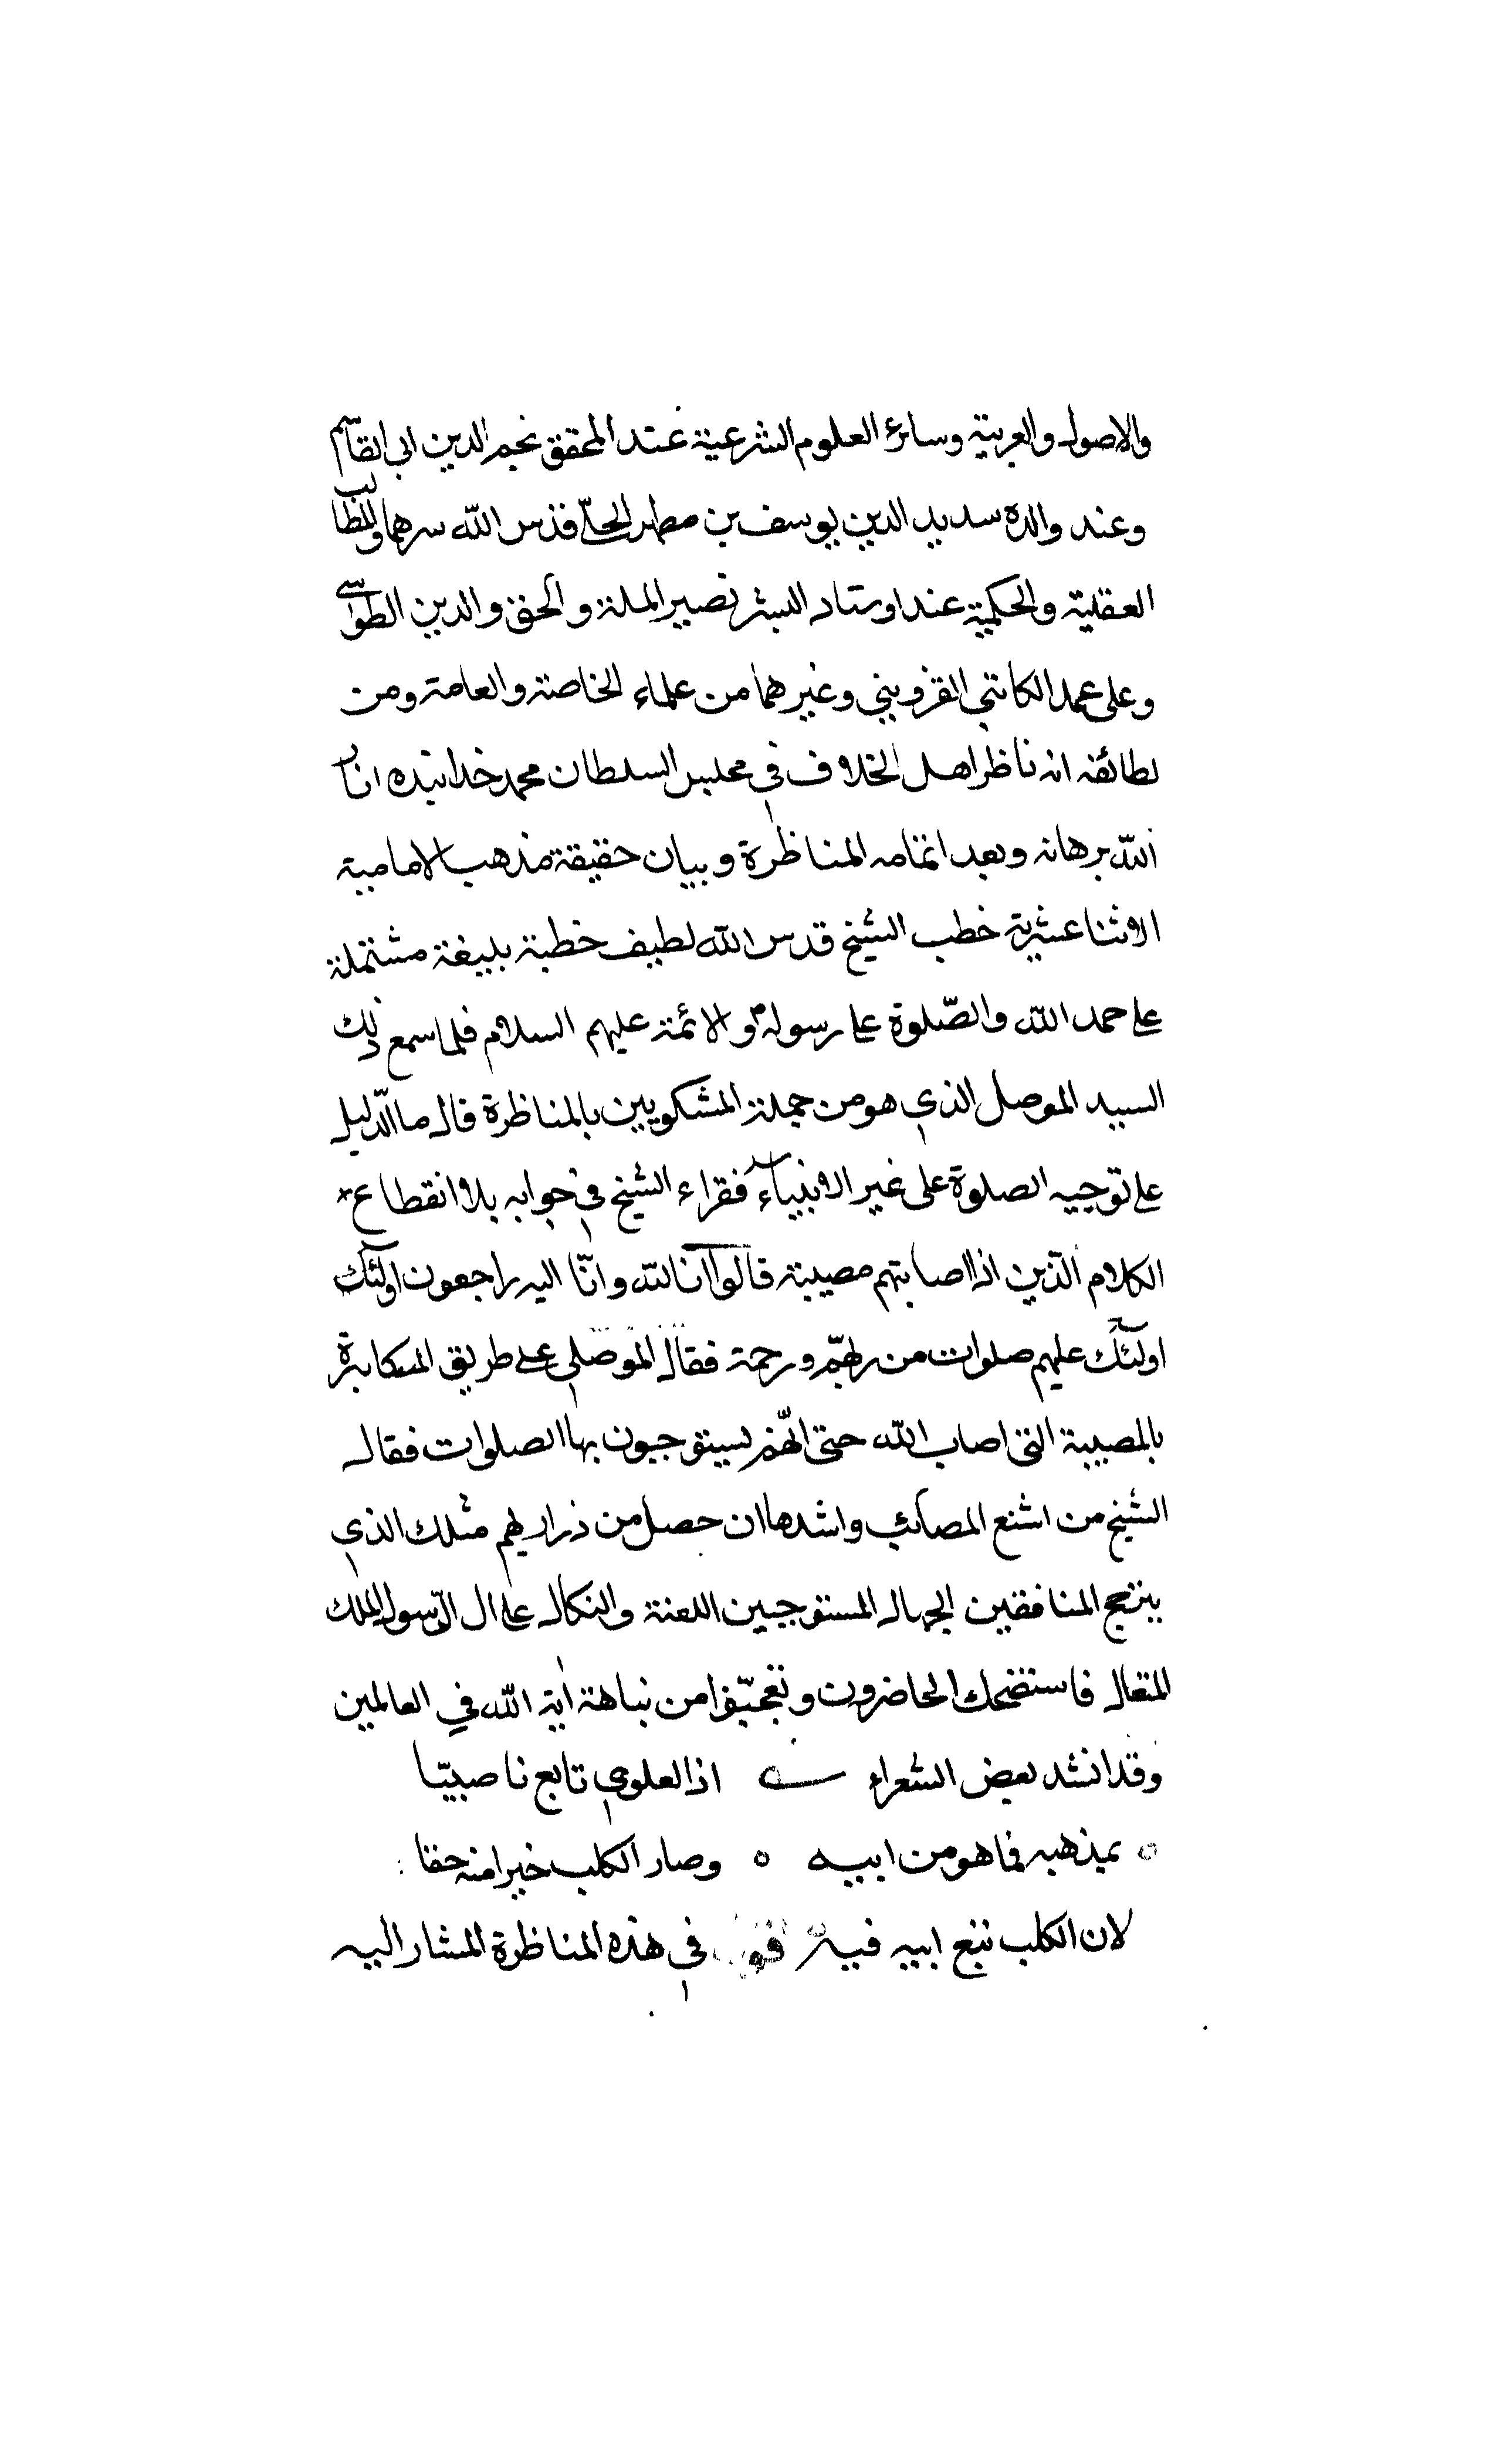 والاصول والعربية وسائر العلوم الشرعية عند المحقق نجم الدين ابى القاسم
وعند والده سديد الدين يوسف بن مطهر الحلّى قدس الله سرهما والمطالب
العقلية والحكمية عند اوستاد البشر نصير الملة والحق والدين الطوسى
وعلى عمد الكاتبى القزوينى وغيرهما من علماء الخاصة والعامة ومن
لطائفه انه ناظر اهل الخلاف فى مجلس السلطان محمد خدابنده انار
الله برهانه وبعد اتمامه المناظرة وبيان حقيقة مذهب الامامية
الاثنا عشرية خطب الشيخ قدس الله لطيف خطبة بليغة مشتملة
على حمد الله والصّلوة على رسوله ص والائمة عليهم السلام فلما سمع ذلك
السيد الموصل الذى هو من جملة المشكويين بالمناظرة قال ما الدّليل
على توجيه الصلوة على غير الانبياء فقراء الشيخ فى جوابه بلا انقطاع
الكلام الّذين اذا اصابتهم مصيبة قالوا انا لله وانّا اليه راجعون اولئك
اولئك عليهم صلوات من ربّهم ورحمة فقال الموصلى على طريق المكابرة
بالمصيبة التى اصاب الله حتى انّهم يستوجبون بها الصلوات فقال
الشيخ من اشنع المصائب واشدها ان حصل من ذراريهم مثلك الذى
يرجح المنافقين الجهال المستوجبين اللعنة والنكال على ال الرّسول الملك
المتعال فاستضحك الحاضرون وتعجّبوا من نباهة اية الله فى العالمين
وقد انشد بعض الشعراء اذا العلوى تابع ناصبيّا
بمذهبه فما هو من ابيه ه وصار الكلب خيرا منه حقا
لان الكلب تبع ابيه فيه فى هذه المناظرة المشار اليه